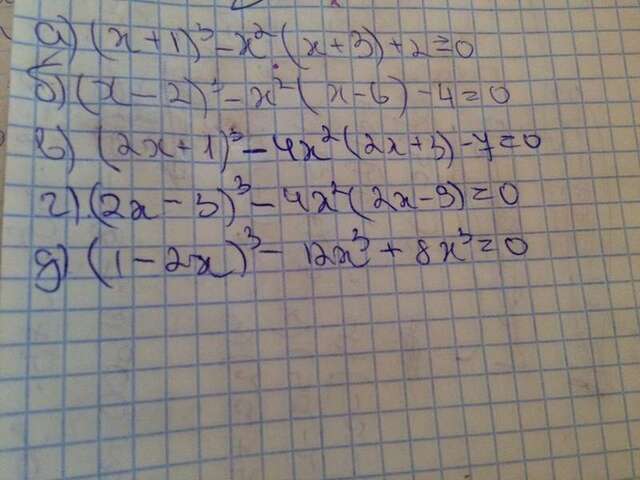 а) (x+1)³-x²(x+3)+2=0
б) (x-2)³-x²(x-6)-4=0
в) (2x+1)³-4x²(2x+3)-7=0
г) (2x-3)³-4x²(2x-9)=0
д) (1-2x)³-12x³+8x³=0